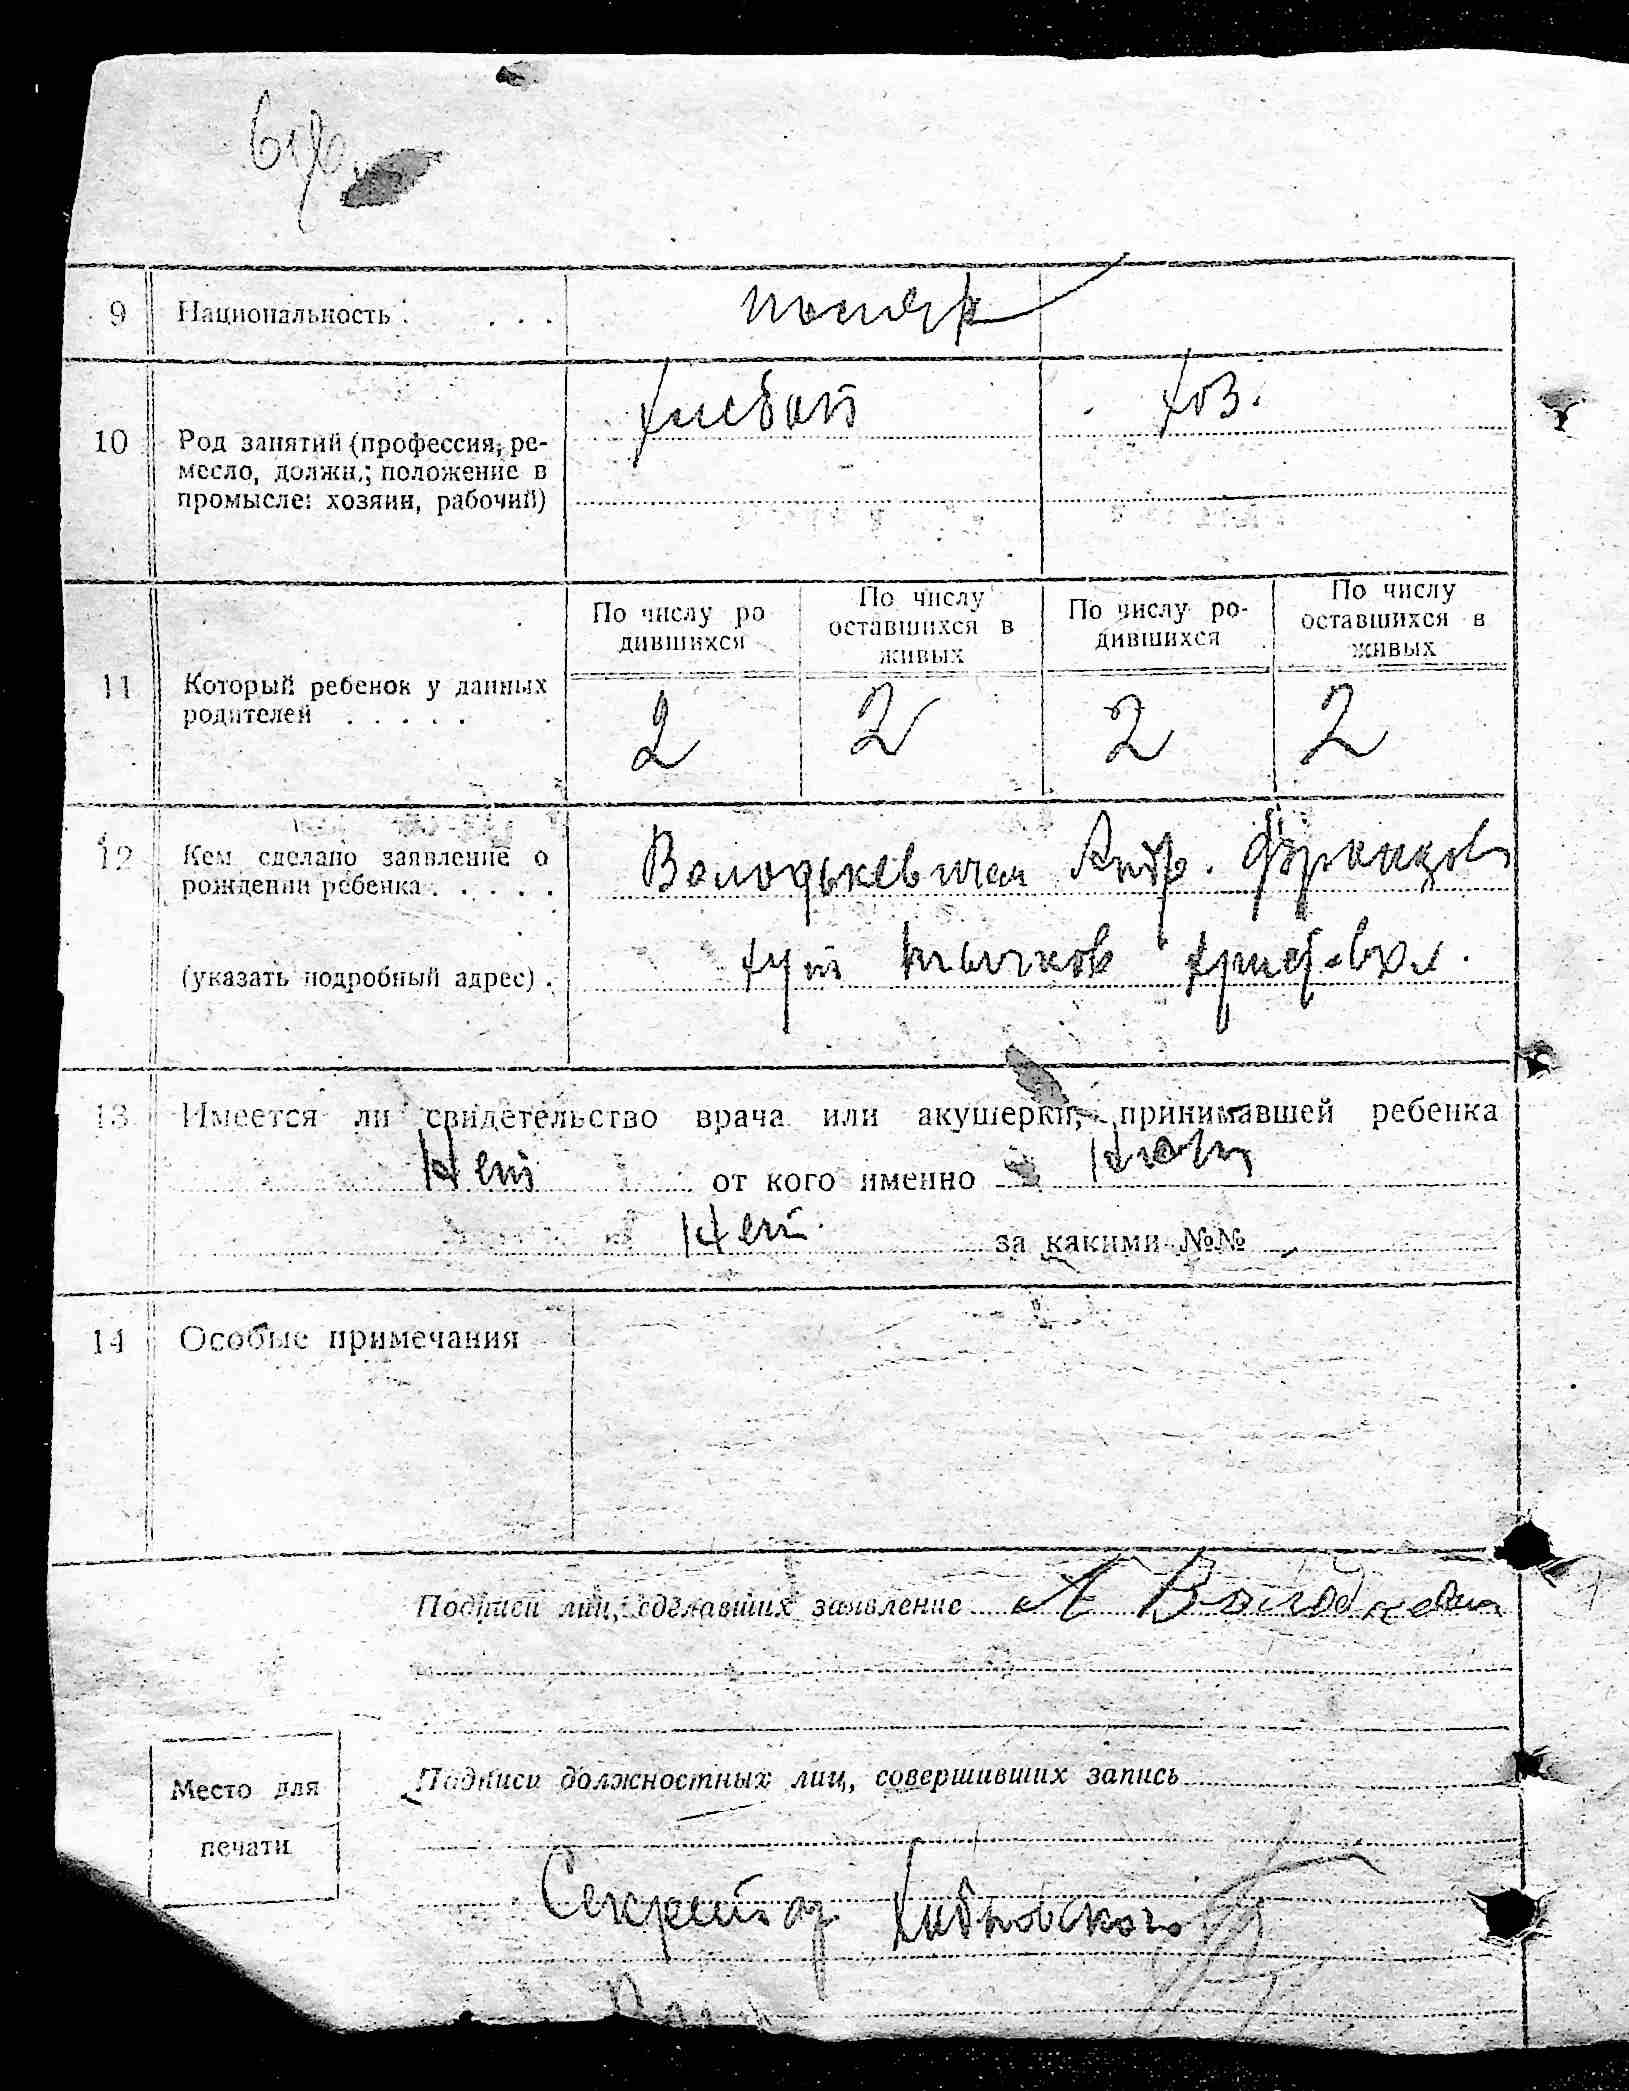 9 Национальность . . . . поляк
10 Род занятий (профессия, ре-
месло, должн.; положение в
промысле: хозяин, рабочий)
хлебоп хоз.
11 Который ребенок у данных
родителей . . . . .
По числу ро
дившихся
По числу
оставшихся в
живых
По числу ро-
дившихся
По числу
оставшихся в
живых
2 2 2 2
12 Кем сделано заявление о
рождении ребенка . . . . .
Володькевичем Андр. Францов
(указать подробный адрес) .
хут
13 Имеется ли свидетельство врача или акушерки, принимавшей ребенка
Нет от кого именно Нет
Нет за какими №№ —
14 Особые примечания
Подписи лиц, сделавших заявление А Володкевич
Подписи должностных лиц, совершивших запись
Место для
печати
Секретар